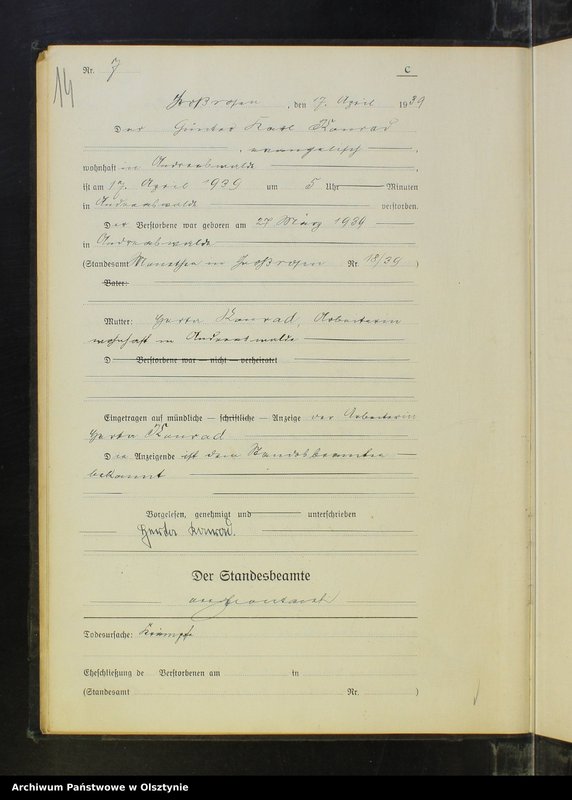 14
Nr. 7 C
Großrosen, den 17. April 1939
Der Günter Karl Konrad
, evangelisch
wohnhaft in Andreaswalde
ist am 17. April 1939 um 5 Uhr Minuten
in Andreaswalde verstorben.
Der Verstorbene war geboren am 27. März 1939
in Andreaswalde
(Standesamt in Großrosen Nr. 18/39)
Vater:
Mutter: Herta Konrad, Arbeiterin
wohnhaft in Andreaswalde
D Verstorbene war — nicht — verheiratet
Eingetragen auf mündliche — schriftliche — Anzeige der Arbeiterin
Herta Konrad
Die Anzeigende ist dem Standesbeamten
bekannt
Vorgelesen, genehmigt und unterschrieben
Herta Konrad.
Der Standesbeamte
Todesursache: Krämpfe
Eheschließung de Verstorbenen am in
(Standesamt Nr. )
Archiwum Państwowe w Olsztynie